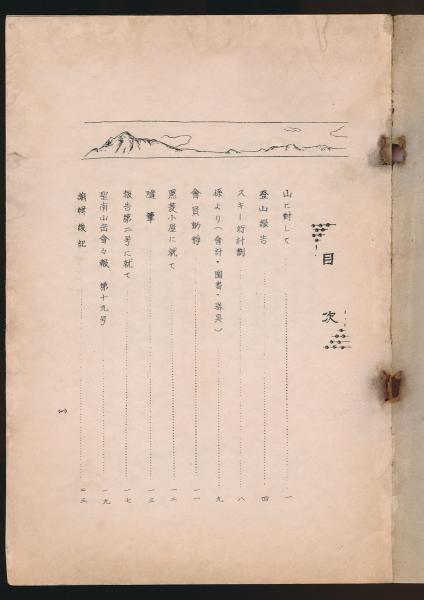 目次
山に対して 一
登山報告 四
スキー行計劃 八
係より（會計・圖書・器具） 九
會員動静 一一
黒菱小屋に就て 一二
隨筆 一三
報告第二号に就て 一七
聖南山岳會々報 第十九号 一九
編輯後記 二三
(一)